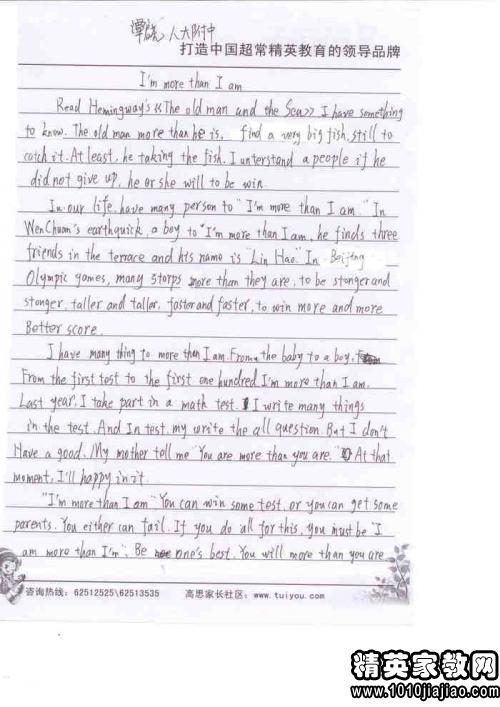 人大附中
打造中国超常精英教育的领导品牌
I'm more than I am
Read Hemingway's 《The old man and the Sea》 I have something
to know. The old man more than he is, find a very big fish, still to
catch it. At least, he taking the fish. I unterstand a people if he
did not give up, he or she will to be win.
In our life, have many person to "I'm more than I am." In
WenChuan's earthquick, a boy to "I'm more than I am, he finds three
friends in the terrace and his name is "Lin Hao". In Beijing
Olympic games, many storps more than they are, to be stonger and
stonger, taller and taller, foster and faster, to win more and more
Better score.
I have many thing to more than I am. From the baby to a boy,
From the first test to the first one hundred I'm more than I am.
Last year, I take part in a math test. I write many things
in the test. And In test, my write the all question. But I don't
Have a good. My mother tell me "You are more than you are." At that
moment, I'll happy in it.
"I'm more than I am" You can win some test, or you can get some
parents. You either can fail. If you do all for this, you must be "I
am more than I'm". Be one's best. You will more than you are
咨询热线：62512525\62513535 高思家长社区：www.tuiyou.com
精英家教网
www.1010jiajiao.com